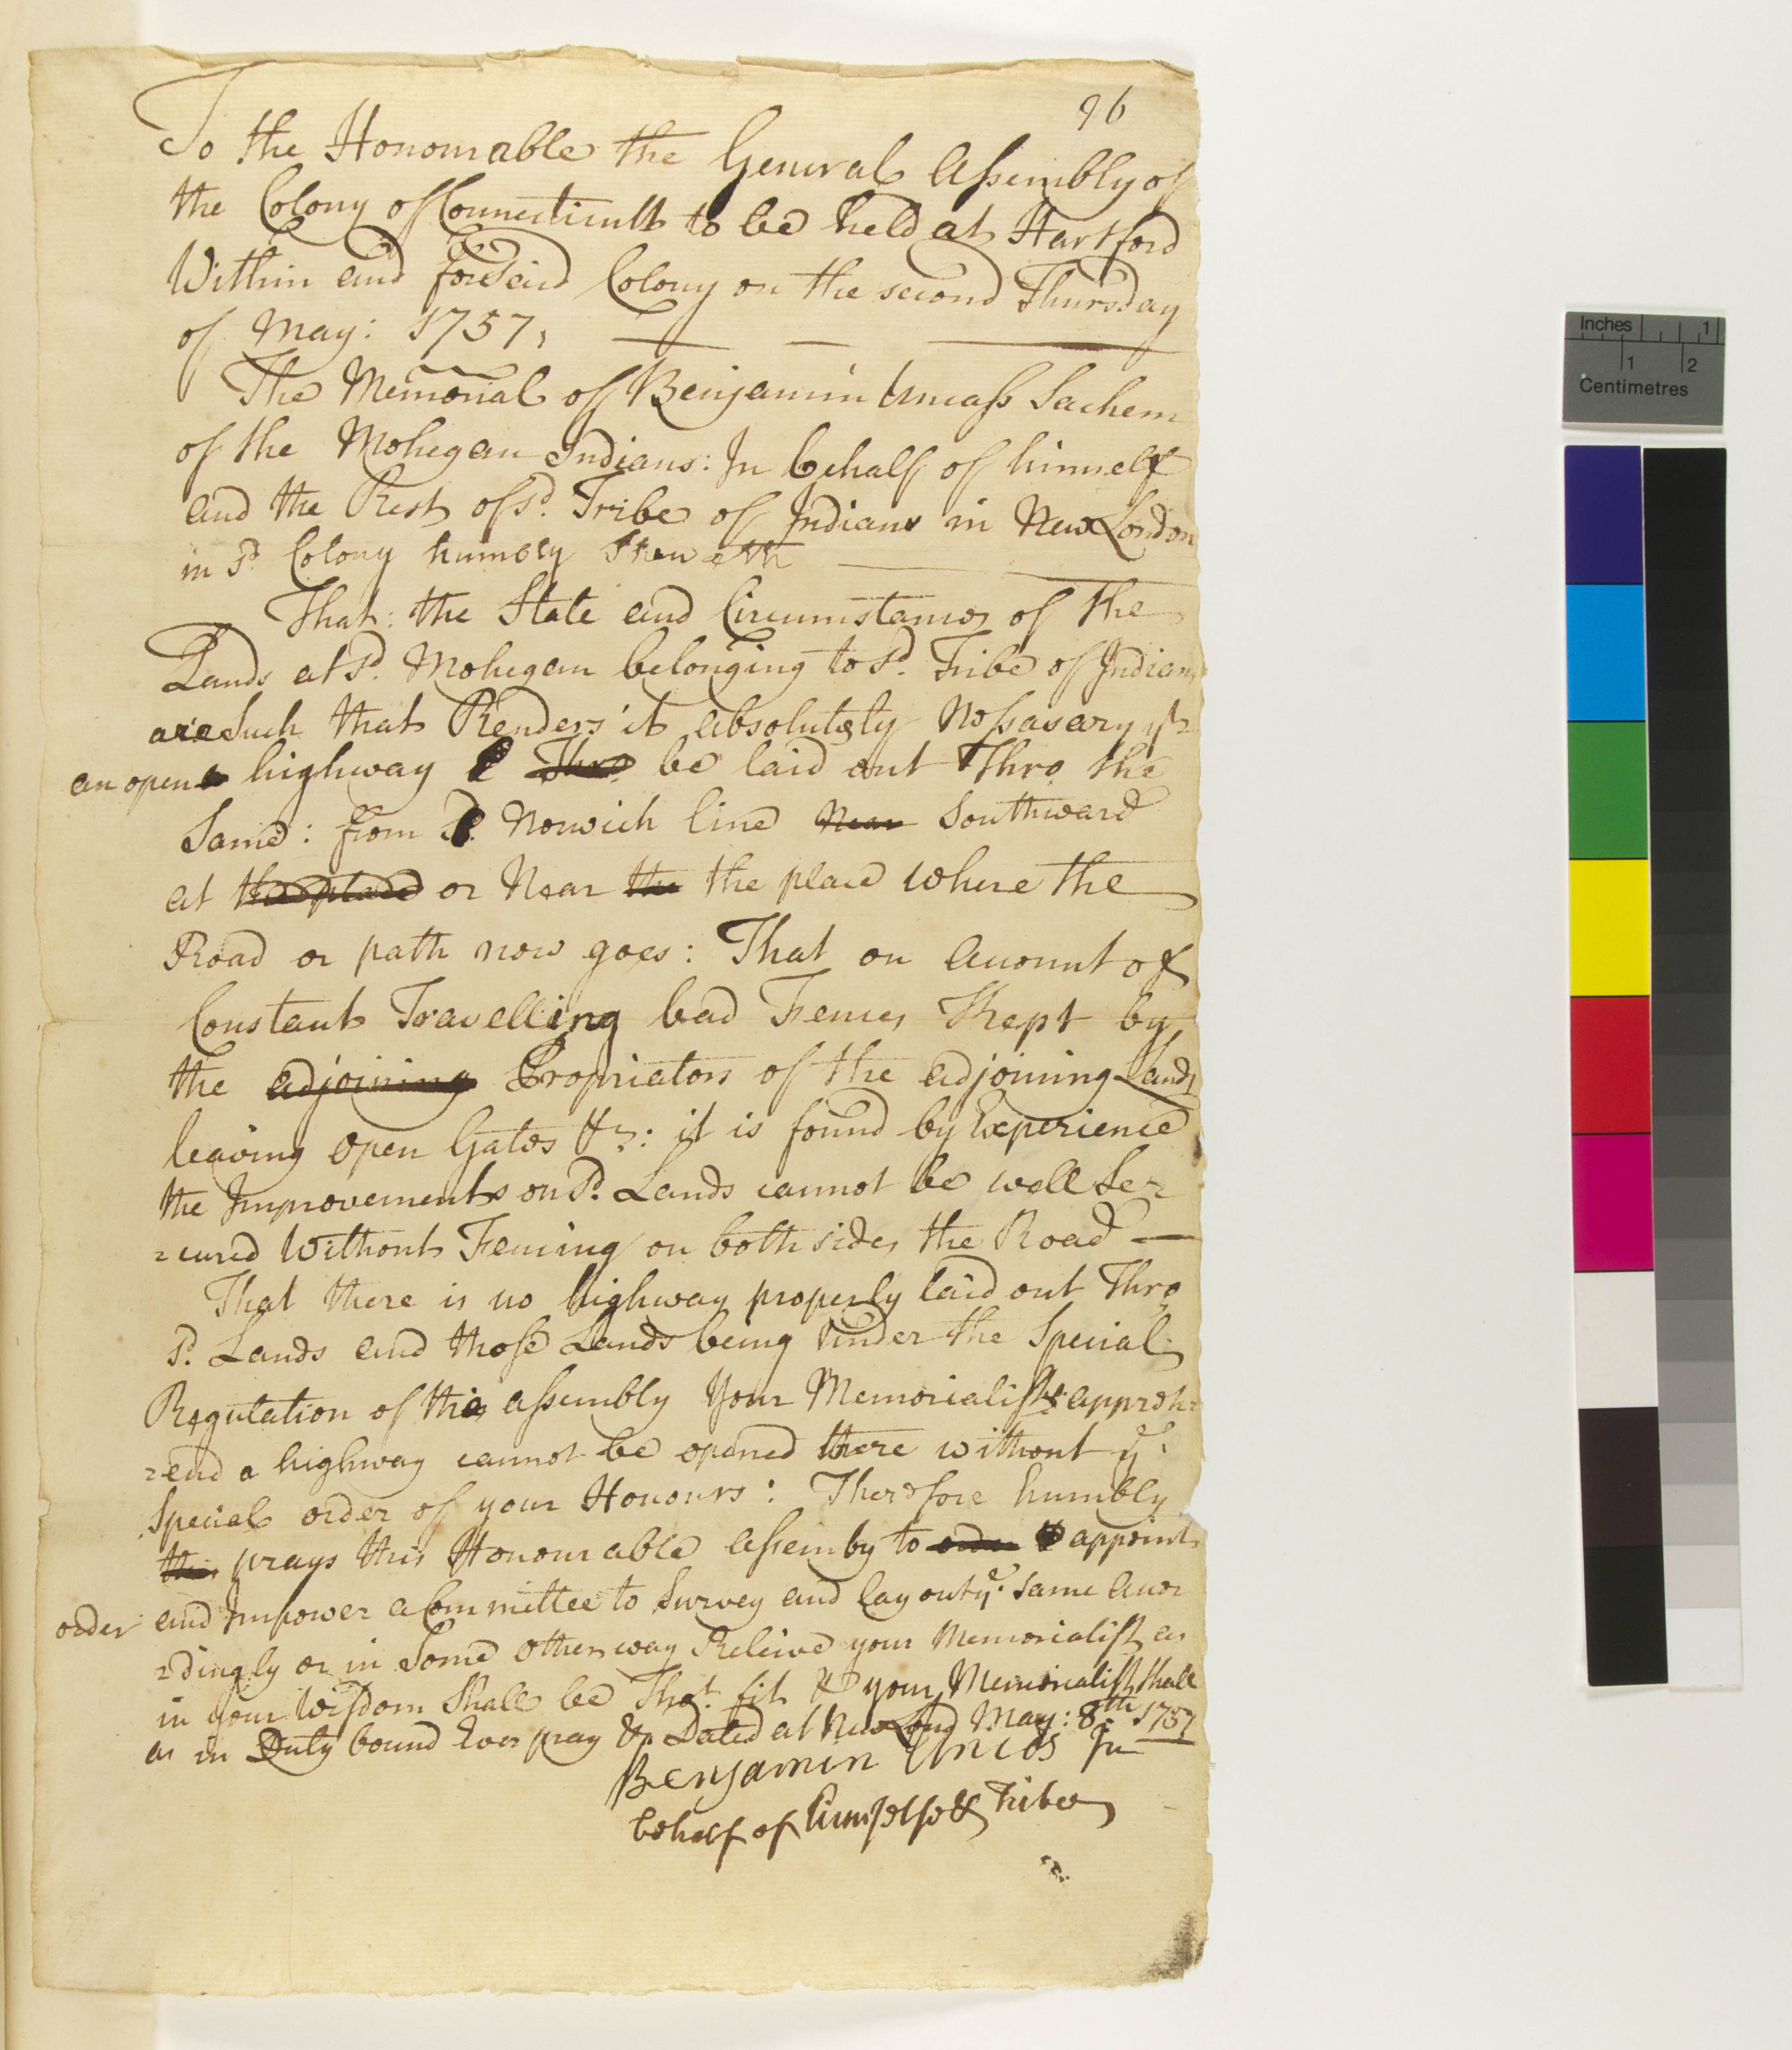 96
To the Honourable the General Assembly of
the Colony of Connecticutt to be held at Hartford
Within and for Said Colony on the second Thursday
of May: 1757,
The Memorial of Benjamin Uncass Sachem
of the Mohegan Indians: In behalf of himself
and the Rest of sd. Tribe of Indians in New London
in sd. Colony humbly Sheweth
That: the State and Circumstances of the
Lands at sd. Mohegan belonging to sd. Tribe of Indians
are Such that Renders it absolutely Nessasary yt
an open highway Thro be laid out Thro the
Same: from Norwich line Near Southward
at the place or Near the the place where the
Road or path now goes: That on account of
Constant Travelling bad Fences Kept by
the adjoining Propriators of the adjoining Lands
leaving open Gates &c: it is found by Experience
the Improvements on sd. Lands cannot be well Se-
-cured Without Fencing on both sides the Road
That there is no highway properly laid out Thro
sd. Lands and those Lands being under the Special
Regulation of this assembly Your Memorialist appreh-
-end a highway cannot be opened there without ye.
Special order of your Honours: Therefore humbly
this prays this Honourable assemby to order appoint
order and Impower a Committee to Survey and lay out ye. same accor
-dingly or in Some other way Releive your Memorialist as
in your Wisdom Shall be Thot. fit & your Memorialist shall
as in Duty bound Ever pray &c Dated at New Lond May: 8th 1757
Benjamin Uncas In
behalf of himself & Tribe
Inches 1
1 2
Centimetres